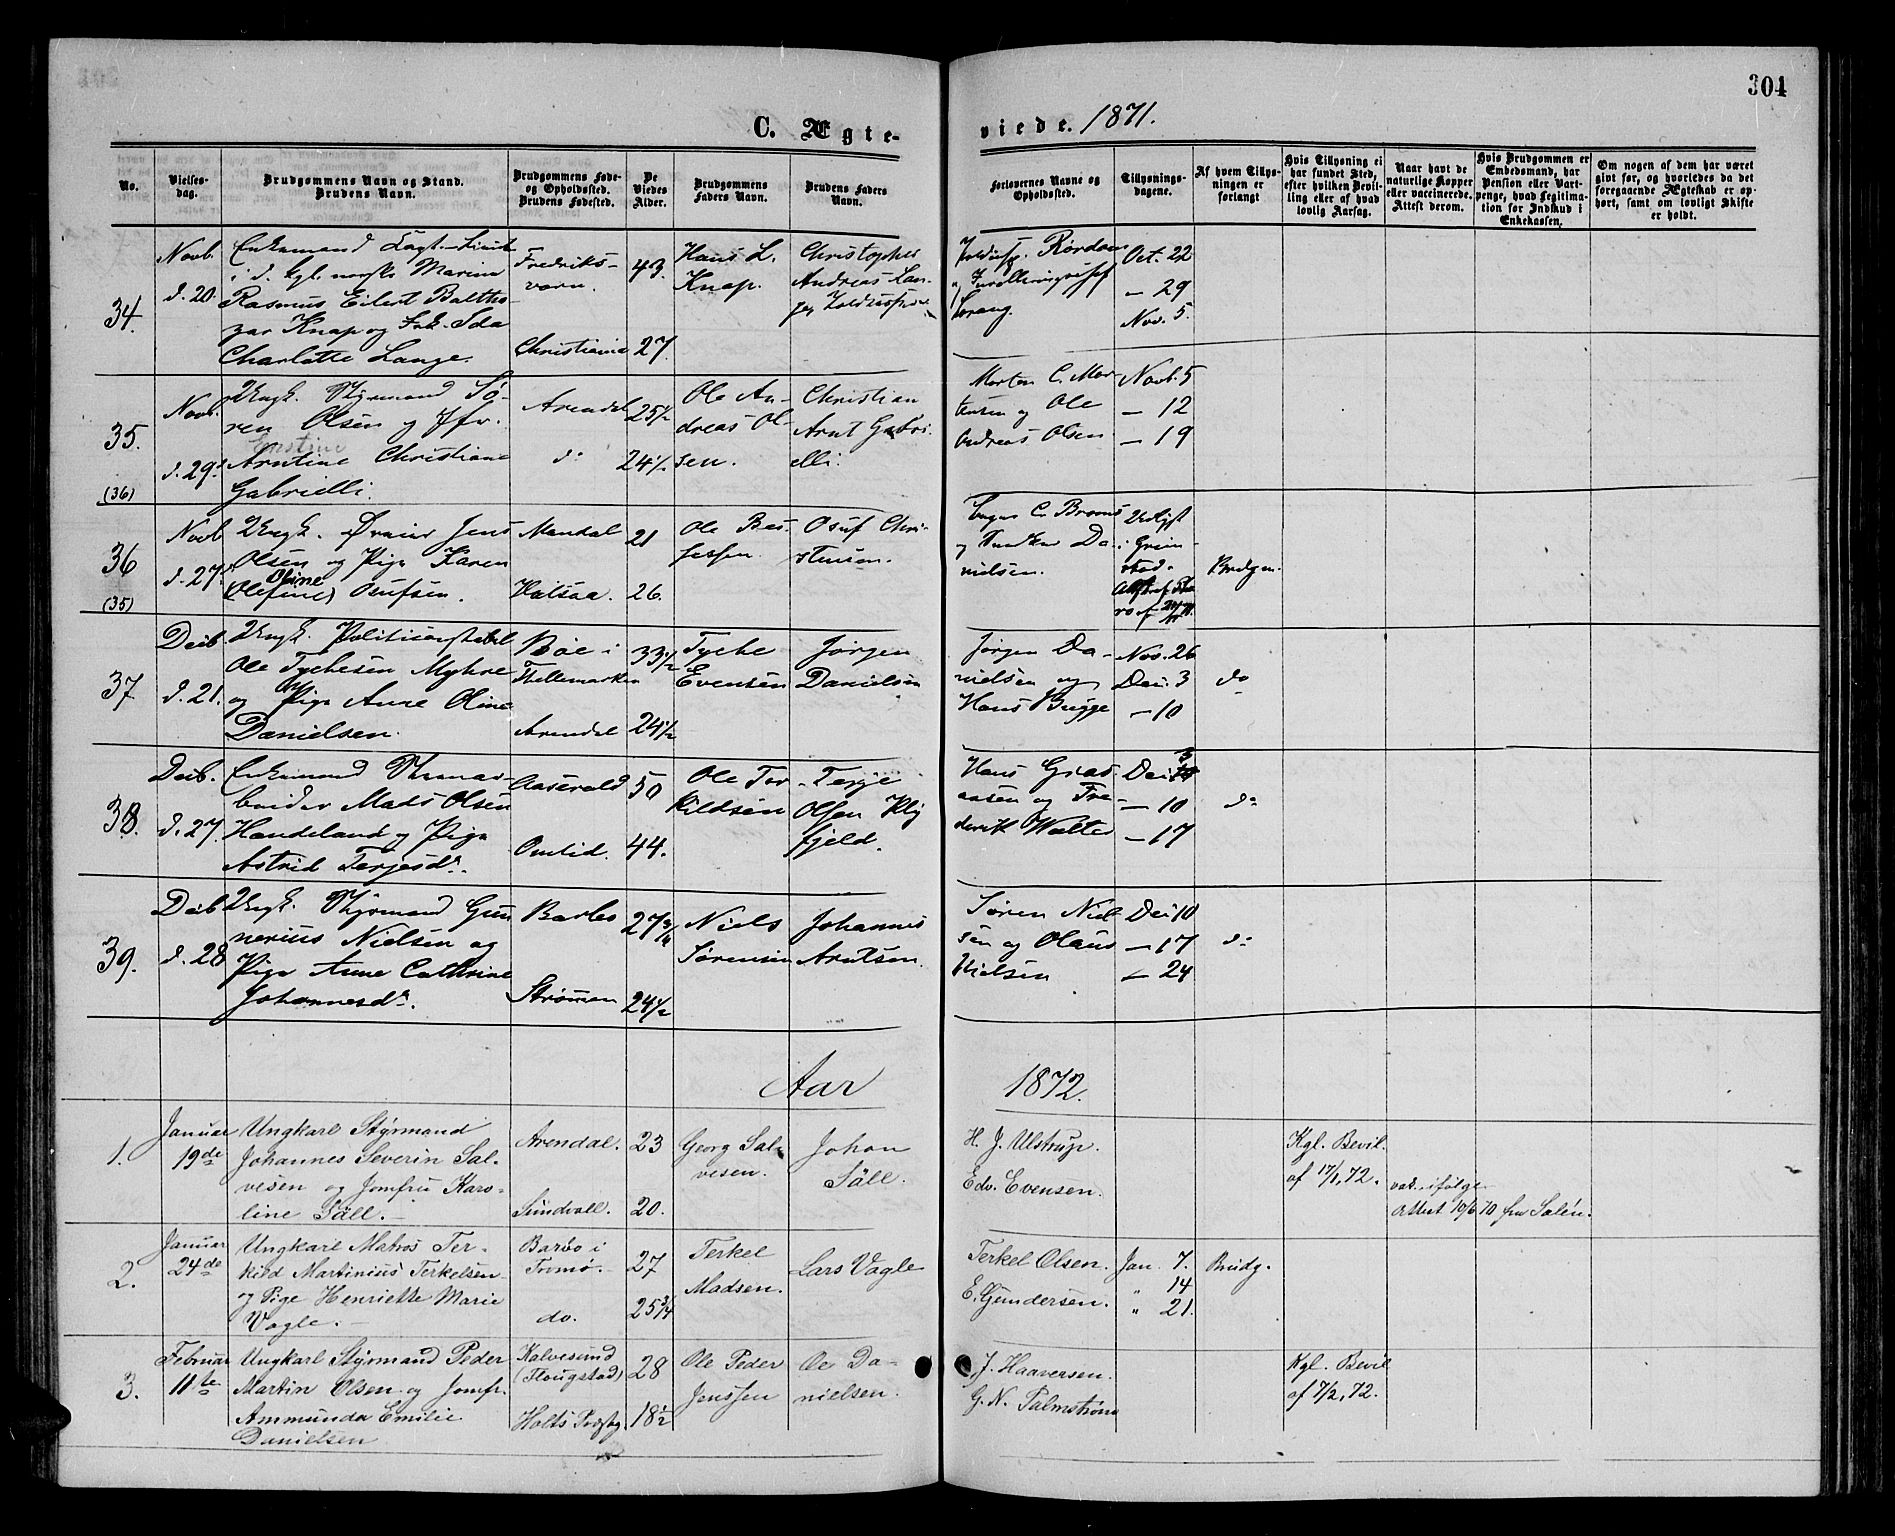 304
C. Ægte-
viede. 1871.
No.
Vielses-
dag.
Brudgommens Navn og Stand.
Brudens Navn.
Brudgommens Føde-
og Opholdssted.
Brudens Fødested.
De
Viedes
Alder.
Brudgommens
Faders Navn.
Brudens Faders
Navn.
Forlovernes Navne og
Opholdssted.
Tillysnings-
dagene.
Af hvem Tillys-
ningen er
forlangt
Hvis Tillysning ei
har fundet Sted,
efter hvilken Bevil-
ling eller af hvad
lovlig Aarsag.
Naar havt de
naturlige Kopper
eller vaccinerede.
Attest derom.
Hvis Brudgommen er
Embedsmand, har
Pension eller Vart-
penge, hvad Legitima-
tion for Indskud i
Enkekassen.
Om nogen af dem har været
gift før, og hvorledes da det
foregaaende Ægteskab er op-
hørt, samt om lovligt Skifte
er holdt.
34.
Novb.
d. 20.
Enkemand Capt-Lieut
i d. kgl. norske Marine
Rasmus Eilert Baltha-
zar Knap og Frk. Ida
Charlotte Lange.
Fredriks-
værn.
Christiania
43.
27.
Hans L.
Knap.
Christopher
Andreas Lan-
ge,
Rørdam
Oct. 22
— 29
Nov. 5.
35.
(36)
Novb.
d. 29.
Ungk. Styrmand Sø-
ren Olsen og Jfr.
Ernstine
Arntine Christiane
Gabrielli.
Arendal
do
25 1/2
24 1/2
Ole An-
dreas Ol-
sen.
Christian
Arnt Gabri-
elli.
Morten C. Mor-
tensen og Ole
Andreas Olsen.
Novb. 5
— 12
— 19
36
(35)
Novb
d. 27.
Ungk. Jens
Olsen og Pige Karen
Oline
(Olefine) Osufsen.
Mandal
Halsaa.
21
26.
Ole
Osuf Chri-
stensen.
C.
og Da-
nielsen.
i Grim-
stad.
Brudgm.
37
Decb.
d. 21.
Ungk. Politiconstabel
Ole Tychesen Myhre
og Pige Anne Oline
Danielsen.
Bøe i
Thellemarken
Arendal
33 1/2
24 1/2
Tyche
Evensen
Jørgen
Danielsen
Jørgen Da-
nielsen og
Hans Bugge
Nov. 26
Dec. 3
— 10
do
38.
Decb.
d. 27.
Enkemand
Mads Olsen
Handeland og Pige
Astrid Terjesdr.
Aaserald
Omlid.
50
44.
Ole Tor-
kildsen
Terje
Olsen Kly-
fjeld.
Hans Graa-
aasen og Fre-
derik Walter
Dec. 3
— 10
— 17
do
39.
Decb
d. 28
Ungk. Styrmand Gun-
nerius Nielsen og
Pige Anne Cathrine
Johannesdr.
Barbo
Strømmen
27 3/4
24 1/2
Niels
Sørensen
Johannes
Arntsen.
Søren Niel-
sen og Olaus
Nielsen
Dec 10
— 17
— 24
do
Aar
1872.
1.
Januar
19de
Ungkarl Styrmand
Johannes Severin Sal-
vesen og Jomfru Karo-
line Säll.
Arendal.
Sundvall.
23
20.
Georg Sal-
vesen.
Johan
Säll.
H. J. Ulstrup.
Edv. Evensen.
Kgl. Bevil.
af 17/1, 72.
vac. ifølge
Attest 10/6 70 fra Salén.
2.
Januar
24de
Ungkarl Matros Ter-
kild Martinius Terkelsen
og Pige Henriette Marie
Vagle.
Barbo i
Tromø.
do.
27
25 3/4
Terkel
Madsen.
Lars Vagle
Terkel Olsen.
E. Gundersen.
Jan. 7.
" 14
" 21.
Brudg.
3.
Februar
11te
Ungkarl Styrmand Peder
Martin Olsen og Jomfr.
Ammunda Emilie
Danielsen
Kalvesund
(Flougstad)
Holts Prgjg.
28
18 1/2
Ole Peder
Jenssen
Oe Da-
nielsen.
J. Haaversen.
G. N. Palmstrøm
Kgl. Bevil
af 7/2, 72.